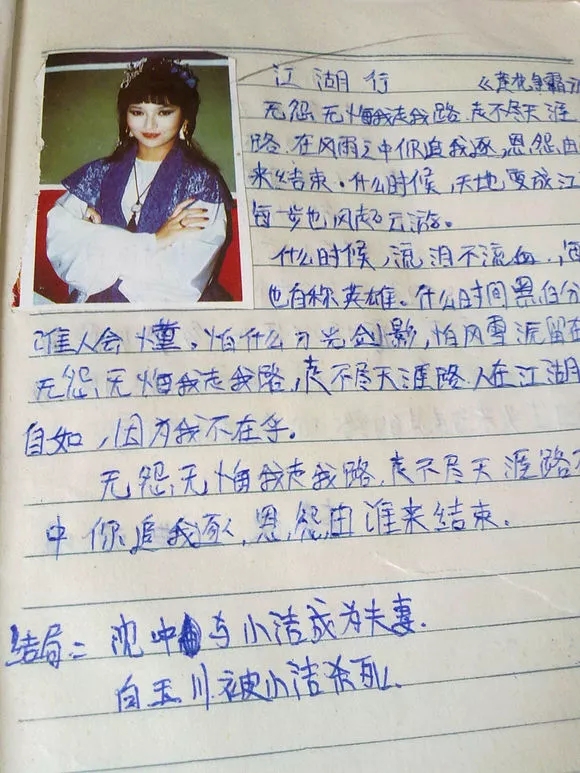 江湖行 《莲花争霸
无怨、无悔我走我路,走不尽天涯
路、在风雨之中你追我逐,恩怨由
来结束。什么时候,天地变成江
每步也风起云游。
什么时候,流泪不流血,
也自称英雄。什么时间黑白分
谁人会懂。怕什么刀光剑影,怕风雪留在
无怨、无悔我走我路,走不尽天涯路、人在江湖
自如,因为我不在乎。
无怨、无悔我走我路、走不尽天涯路
中你追我逐,恩、怨由谁来结束。
结局:沈冲与小洁成为夫妻.
白玉川被小洁杀死.